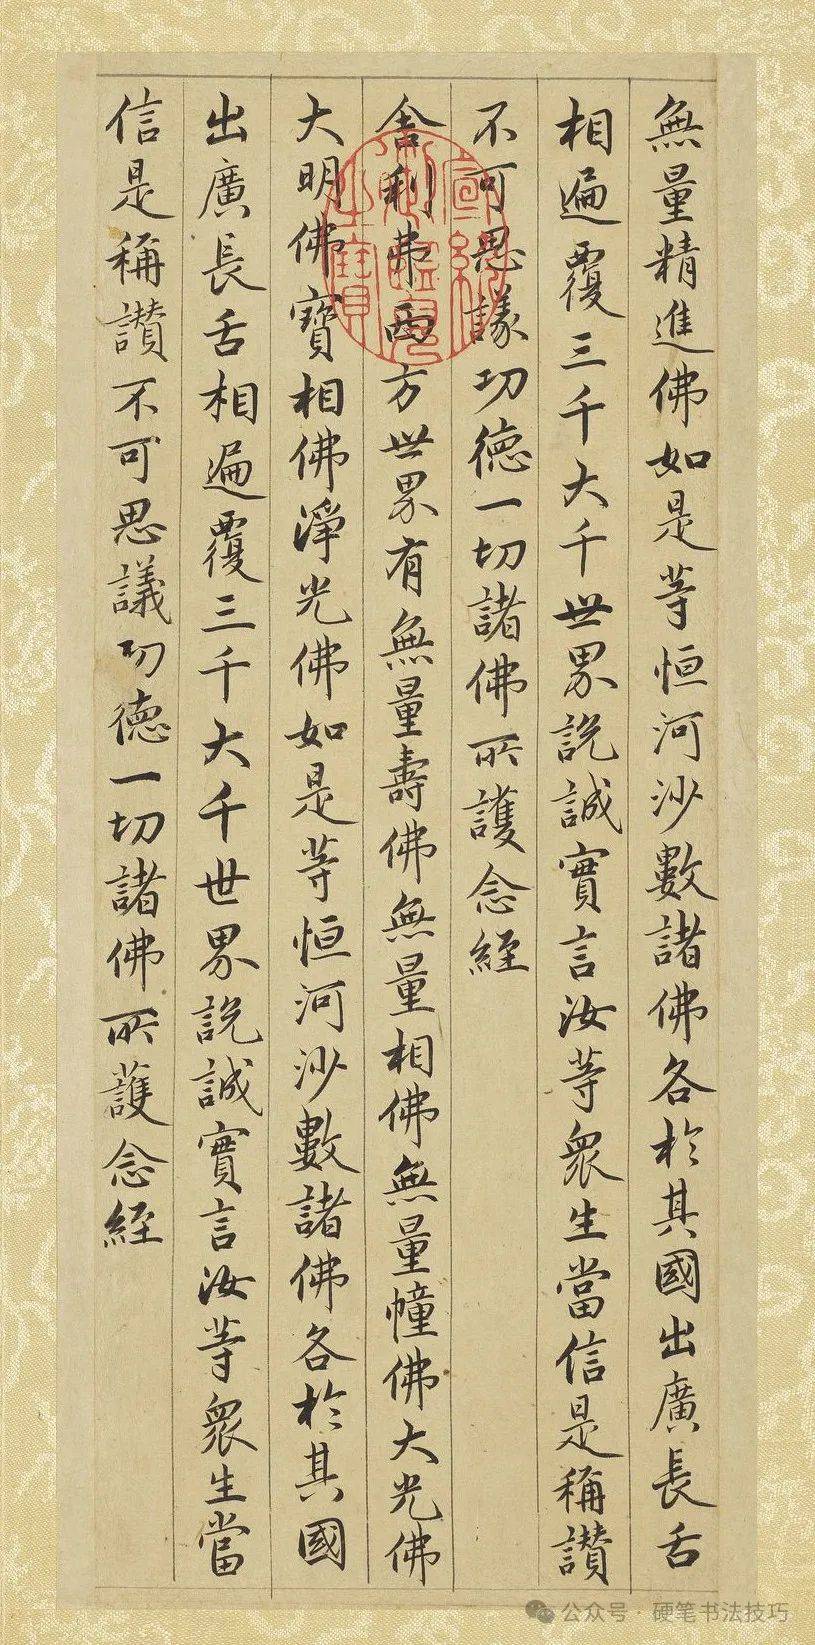 無量精進佛如是等恒河沙數諸佛各於其國出廣長舌
相遍覆三千大千世界説誠實言汝等眾生當信是稱讃
不可思議功德一切諸佛所護念經
舍利弗西方世界有無量壽佛無量相佛無量幢佛大光佛
大明佛寶相佛淨光佛如是等恒河沙數諸佛各於其國
出廣長舌相遍覆三千大千世界説誠實言汝等眾生當
信是稱讃不可思議功德一切諸佛所護念經
公众号·硬笔书法技巧